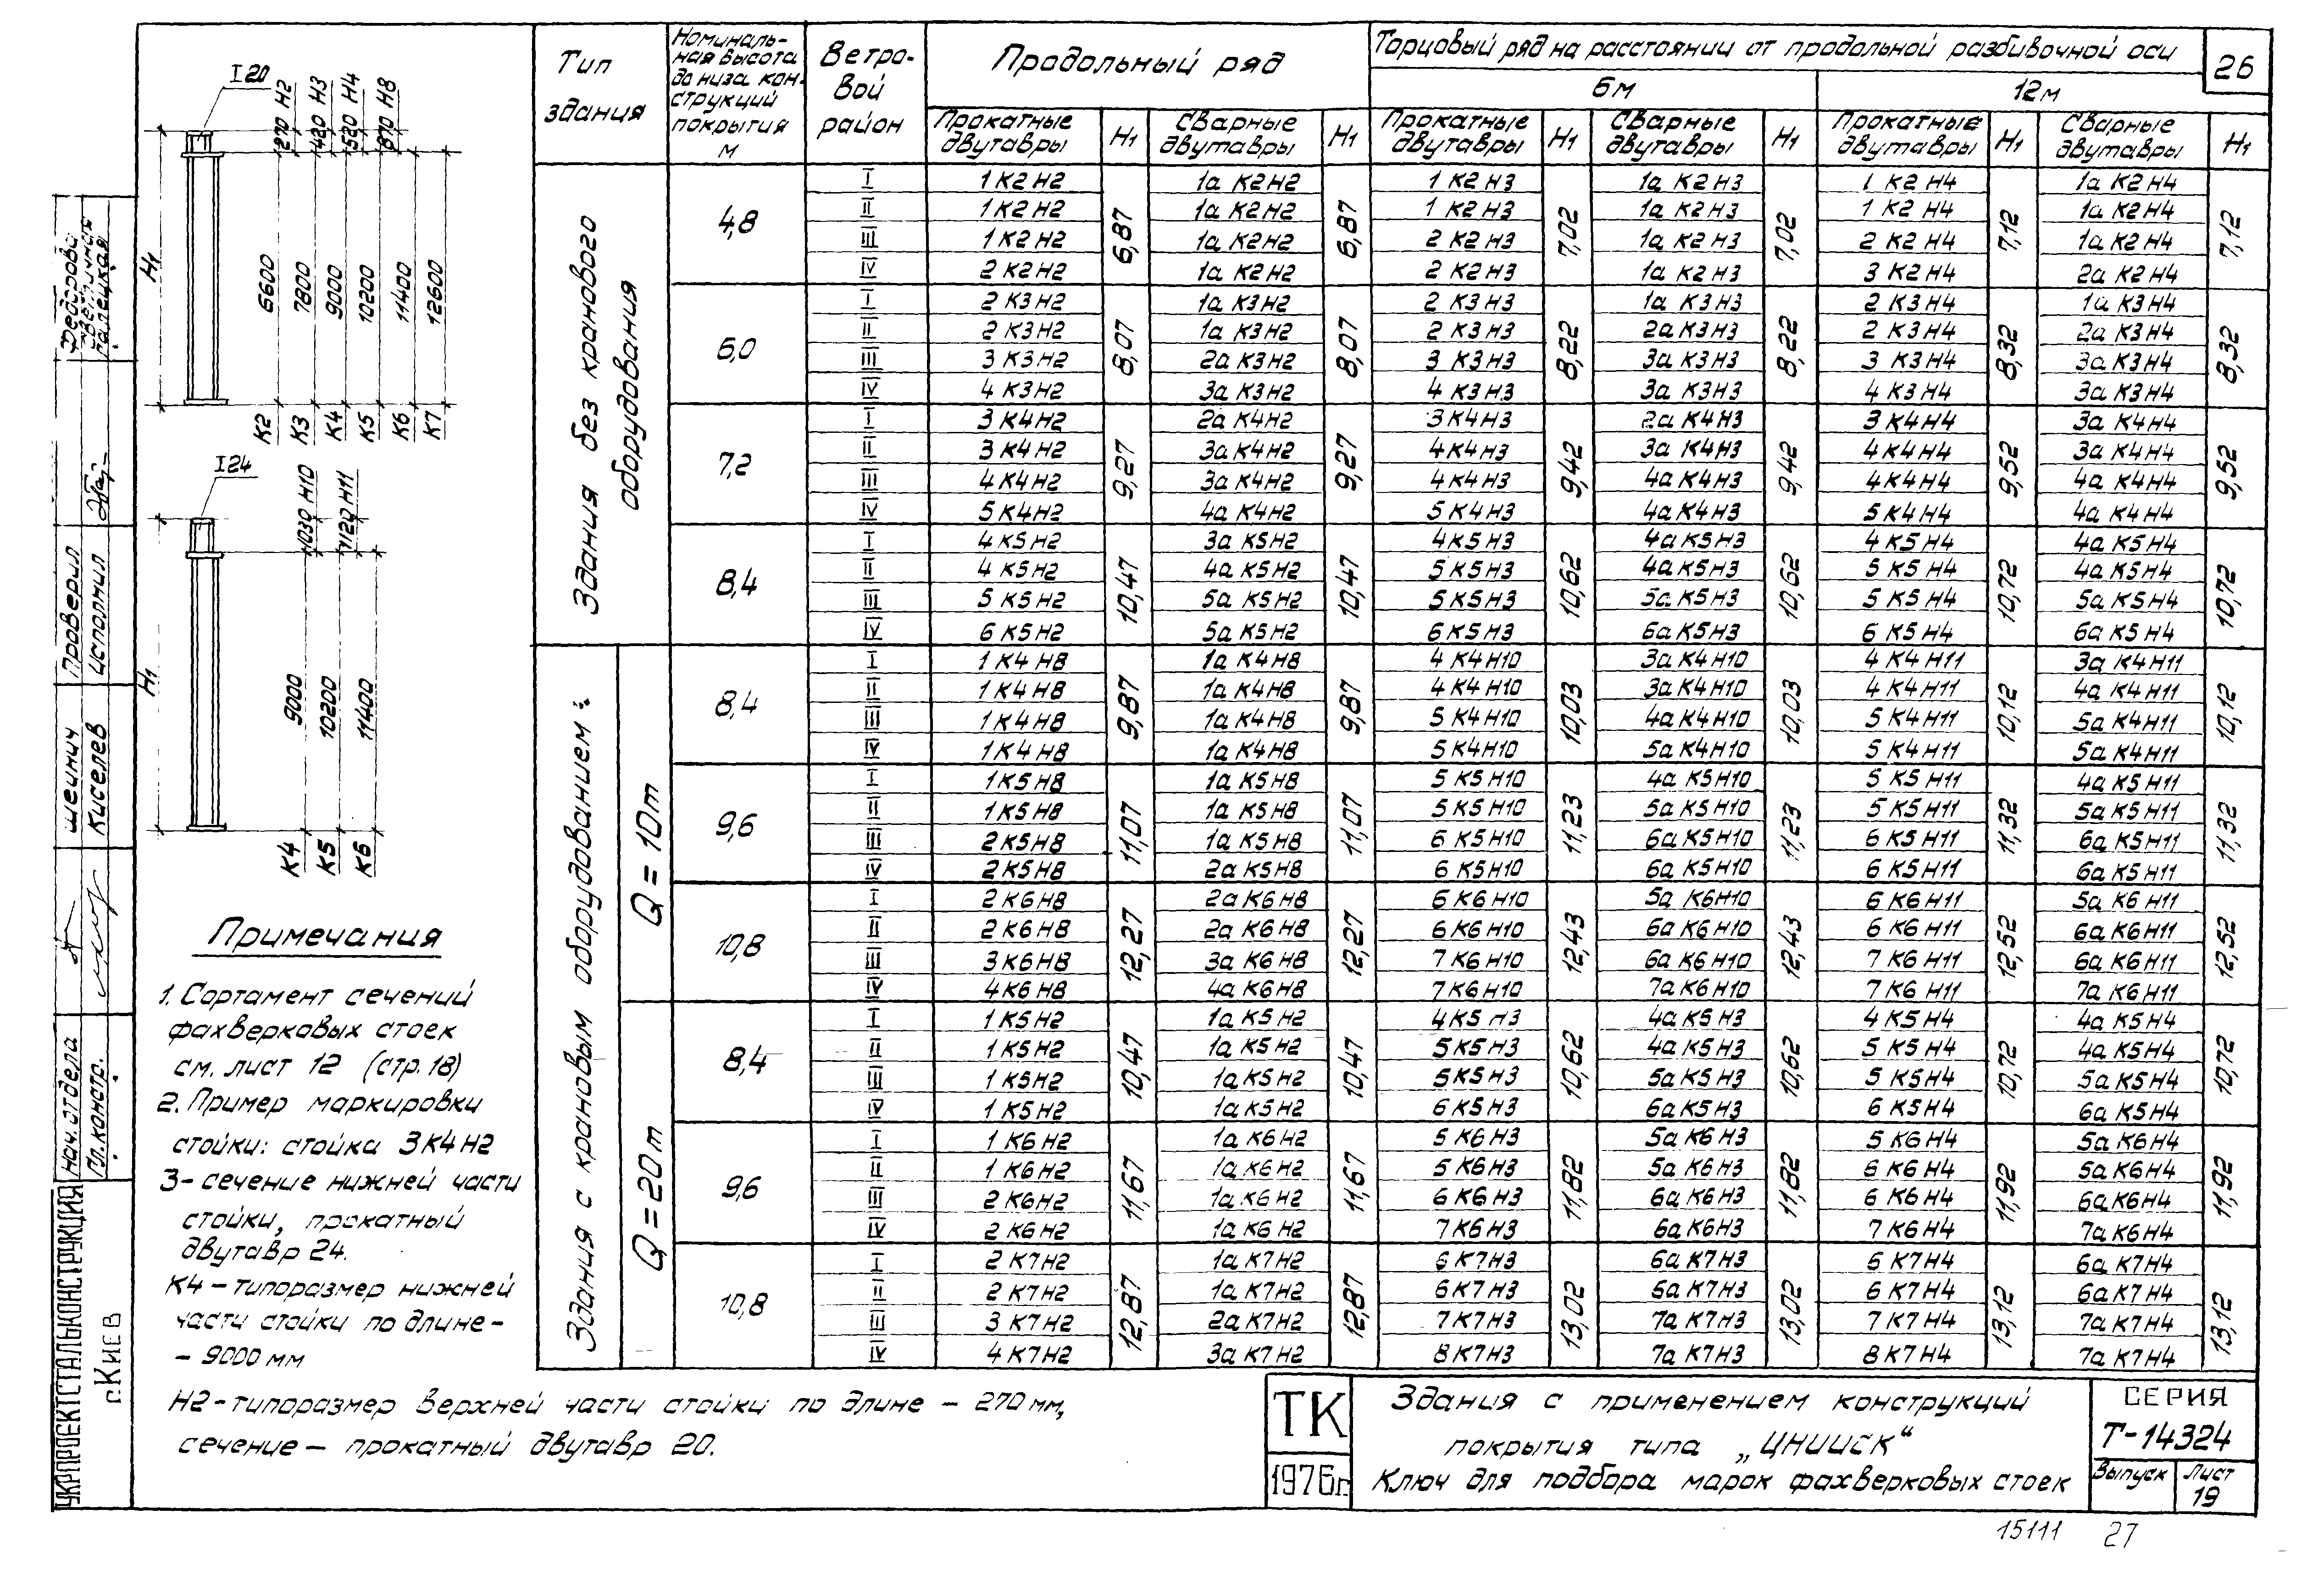 26
Тип здания
Номиналь-
ная высота
до низа кон-
струкций
покрытия
м
Ветро-
вой
район
Продольный ряд
Торцовый ряд на расстоянии от продольной разбивочной оси
6м
12м
Прокатные двутавры | H1 | Сварные двутавры | H1 | Прокатные двутавры | H1 | Сварные двутавры | H1 | Прокатные двутавры | H1 | Сварные двутавры | H1
Здания без кранового оборудования
4,8
6,87 6,87 7,02 7,02 7,12 7,12
I 1К2Н2 1аК2Н2 1К2Н3 1аК2Н3 1К2Н4 1аК2Н4
II 1К2Н2 1аК2Н2 1К2Н3 1аК2Н3 1К2Н4 1аК2Н4
III 1К2Н2 1аК2Н2 2К2Н3 1аК2Н3 2К2Н4 1аК2Н4
IV 2К2Н2 1аК2Н2 2К2Н3 1аК2Н3 3К2Н4 2аК2Н4
6,0
8,07 8,07 8,22 8,22 8,32 8,32
I 2К3Н2 1аК3Н2 2К3Н3 1аК3Н3 2К3Н4 1аК3Н4
II 2К3Н2 1аК3Н2 2К3Н3 2аК3Н3 2К3Н4 2аК3Н4
III 3К3Н2 2аК3Н2 3К3Н3 3аК3Н3 3К3Н4 3аК3Н4
IV 4К3Н2 3аК3Н2 4К3Н3 3аК3Н3 4К3Н4 3аК3Н4
7,2
9,27 9,27 9,42 9,42 9,52 9,52
I 3К4Н2 2аК4Н2 3К4Н3 2аК4Н3 3К4Н4 3аК4Н4
II 3К4Н2 3аК4Н2 4К4Н3 3аК4Н3 4К4Н4 3аК4Н4
III 4К4Н2 3аК4Н2 4К4Н3 4аК4Н3 4К4Н4 4аК4Н4
IV 5К4Н2 4аК4Н2 5К4Н3 4аК4Н3 5К4Н4 4аК4Н4
8,4
10,47 10,47 10,62 10,62 10,72 10,72
I 4К5Н2 3аК5Н2 4К5Н3 4аК5Н3 4К5Н4 4аК5Н4
II 4К5Н2 4аК5Н2 5К5Н3 4аК5Н3 5К5Н4 4аК5Н4
III 5К5Н2 5аК5Н2 5К5Н3 5аК5Н3 5К5Н4 5аК5Н4
IV 6К5Н2 5аК5Н2 6К5Н3 6аК5Н3 6К5Н4 6аК5Н4
Здания с крановым оборудованием:
Q = 10т
8,4
9,87 9,87 10,03 10,03 10,12 10,12
I 1К4Н8 1аК4Н8 4К4Н10 3аК4Н10 4К4Н11 3аК4Н11
II 1К4Н8 1аК4Н8 4К4Н10 3аК4Н10 4К4Н11 4аК4Н11
III 1К4Н8 1аК4Н8 5К4Н10 4аК4Н10 5К4Н11 5аК4Н11
IV 1К4Н8 1аК4Н8 5К4Н10 5аК4Н10 5К4Н11 5аК4Н11
9,6
11,07 11,07 11,23 11,23 11,32 11,32
I 1К5Н8 1аК5Н8 5К5Н10 4аК5Н10 5К5Н11 4аК5Н11
II 1К5Н8 1аК5Н8 5К5Н10 5аК5Н10 5К5Н11 5аК5Н11
III 2К5Н8 1аК5Н8 6К5Н10 6аК5Н10 6К5Н11 6аК5Н11
IV 2К5Н8 2аК5Н8 6К5Н10 6аК5Н10 6К5Н11 6аК5Н11
10,8
12,27 12,27 12,43 12,43 12,52 12,52
I 2К6Н8 2аК6Н8 6К6Н10 5аК6Н10 6К6Н11 5аК6Н11
II 2К6Н8 2аК6Н8 6К6Н10 6аК6Н10 6К6Н11 6аК6Н11
III 3К6Н8 3аК6Н8 7К6Н10 6аК6Н10 7К6Н11 6аК6Н11
IV 4К6Н8 4аК6Н8 7К6Н10 7аК6Н10 7К6Н11 7аК6Н11
Q = 20т
8,4
10,47 10,47 10,62 10,62 10,72 10,72
I 1К5Н2 1аК5Н2 4К5Н3 4аК5Н3 4К5Н4 4аК5Н4
II 1К5Н2 1аК5Н2 5К5Н3 4аК5Н3 5К5Н4 4аК5Н4
III 1К5Н2 1аК5Н2 5К5Н3 5аК5Н3 5К5Н4 5аК5Н4
IV 1К5Н2 1аК5Н2 6К5Н3 6аК5Н3 6К5Н4 6аК5Н4
9,6
11,67 11,67 11,82 11,82 11,92 11,92
I 1К6Н2 1аК6Н2 5К6Н3 5аК6Н3 5К6Н4 5аК6Н4
II 1К6Н2 1аК6Н2 5К6Н3 5аК6Н3 6К6Н4 5аК6Н4
III 2К6Н2 1аК6Н2 6К6Н3 6аК6Н3 6К6Н4 6аК6Н4
IV 2К6Н2 1аК6Н2 7К6Н3 6аК6Н3 7К6Н4 7аК6Н4
10,8
12,87 12,87 13,02 13,02 13,12 13,12
I 2К7Н2 1аК7Н2 6К7Н3 6аК7Н3 6К7Н4 6аК7Н4
II 2К7Н2 1аК7Н2 6К7Н3 6аК7Н3 6К7Н4 6аК7Н4
III 3К7Н2 2аК7Н2 7К7Н3 7аК7Н3 7К7Н4 7аК7Н4
IV 4К7Н2 3аК7Н2 8К7Н3 7аК7Н3 8К7Н4 7аК7Н4
I20
270 Н2
420 Н3
520 Н4
870 Н8
H1
6600 7800 9000 10200 11400 12600
К2 К3 К4 К5 К6 К7
I24
1030 Н10
1120 Н11
H1
9000 10200 11400
К4 К5 К6
Примечания
1. Сортамент сечений
фахверковых стоек
см. лист 12 (стр. 18)
2. Пример маркировки
стойки: стойка 3К4Н2
3- сечение нижней части
стойки, прокатный
двутавр 24.
К4 – типоразмер нижней
части стойки по длине –
– 9000 мм
Н2 – типоразмер верхней части стойки по длине – 270 мм,
сечение – прокатный двутавр 20.
Нач. отдела
Гл. констр.
Шейнич
Киселев
Проверил
Исполнил
Федорова
Палецкая
УКРПРОЕКТСТАЛЬКОНСТРУКЦИЯ
г. Киев
ТК
1976г.
Здания с применением конструкций
покрытия типа „ЦНИИСК“
Ключ для подбора марок фахверковых стоек
СЕРИЯ
Т-14324
Выпуск
Лист
19
15111
27